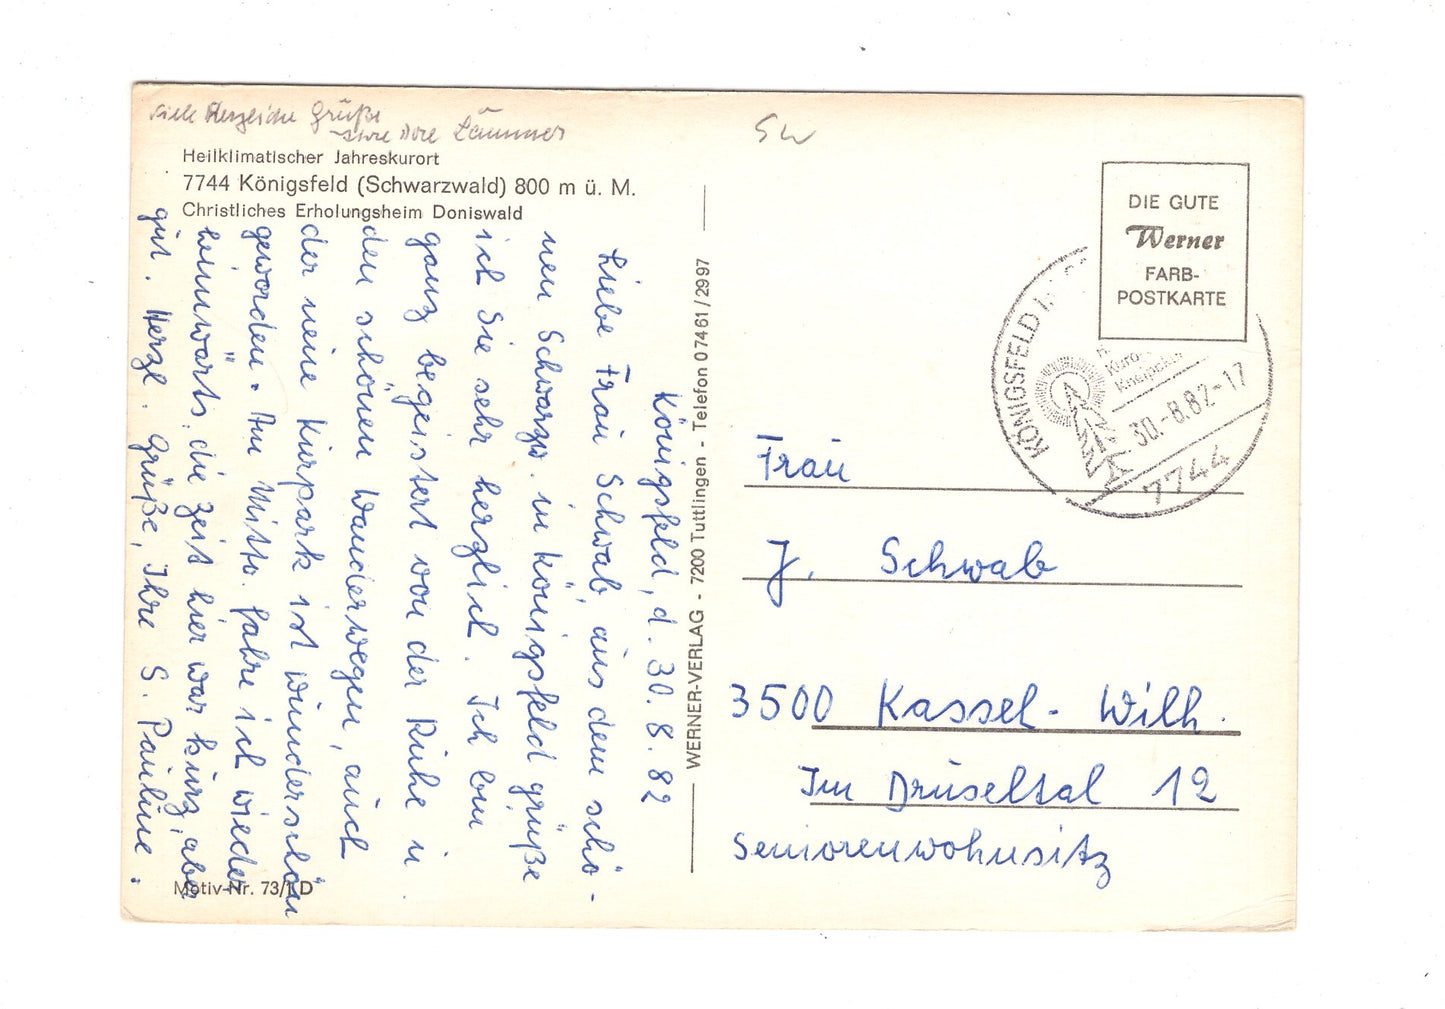 viele herzliche Grüße
Ihre Dore Lämmer
SW
Heilklimatischer Jahreskurort
7744 Königsfeld (Schwarzwald) 800 m ü. M.
Christliches Erholungsheim Doniswald
Königsfeld, d. 30. 8. 82
Liebe Frau Schwab, aus dem schö-
nen Schwarzw. in Königsfeld grüße
ich Sie sehr herzlich. Ich bin
ganz begeistert von der Ruhe u.
den schönen Wanderwegen, auch
der neue Kurpark ist wunderschön
geworden. Am Mittw. fahre ich wieder
heimwärts, die Zeit hier war kurz, aber
gut. Herzl. Grüße, Ihre S. Pauline.
Motiv-Nr. 73/1 D
WERNER-VERLAG - 7200 Tuttlingen - Telefon 07461/2997
DIE GUTE
Werner
FARB-
POSTKARTE
KÖNIGSFELD I.
30.-8.82-17
7744
Frau
J. Schwab
3500 Kassel-Wilh.
Im Druseltal 12
Seniorenwohnsitz